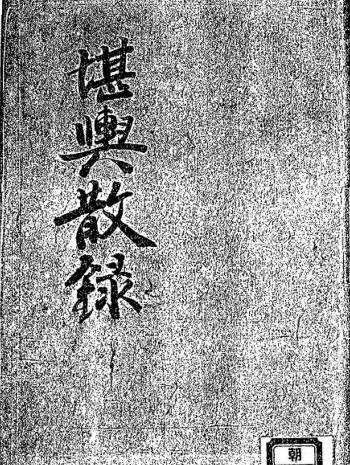 堪輿散録
朝